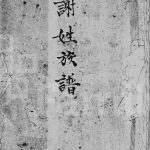 謝姓族譜